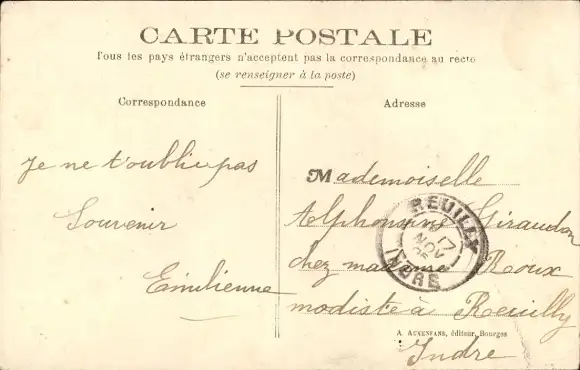 CARTE POSTALE
Tous les pays étrangers n'acceptent pas la correspondance au recto
(se renseigner à la poste)
Correspondance
Je ne t'oublie pas
Souvenir
Emilienne
Adresse
Mademoiselle
Alphonsine Giraudon
chez madame Roux
modiste à Reuilly
Indre
REUILLY
17
NOV
INDRE
A. AUXENFANS, éditeur, Bourges